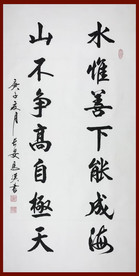 水惟善下能成海
山不争高自極天
庚子夏月